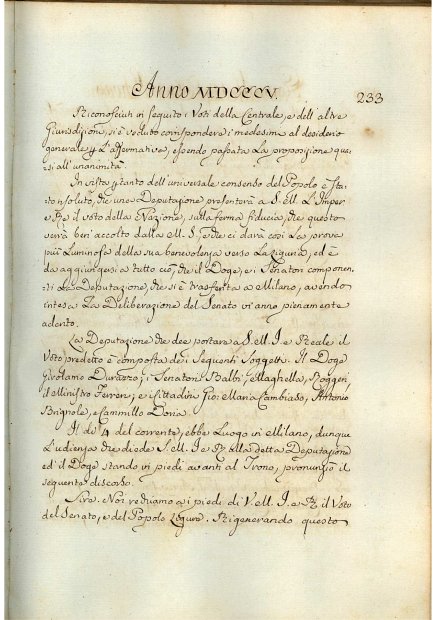 Anno MDCCCV. 233
Riconosciuti in seguito i Voti della Centrale, e dell'altre
Giurisdizioni, si è veduto corrispondere i medesimi al desiderio
generale p L'affermativa, essendo passata La proposizione qua-
si all'unanimità.
In vista ptanto dell'universale consenso del Popolo è sta-
to risoluto, che una Deputazione presenterà a S. M. L'Imper
e Re il voto della Nazione, sulla ferma fiducia, che questo
verrà ben'accolto dalla M. S., e che ci darà così Le prove
più Luminose della sua benevolenza verso La Liguria, ed è
da aggiungersi a tutto ciò, che il Doge, e i Senatori componen-
ti La Deputazione, che si è trasferta a Milano, avendo
intesa La Deliberazione del Senato vi anno pienamente
aderito.
La Deputazione che dee portare a S. M. I. e Reale il
Voto predetto è composta de i Seguenti Soggetti. Il Doge
Girolamo Durazzo; i Senatori Balbi, Maghella, Roggeri,
il Ministro Ferreri, e i Cittadini Gio: Maria Cambiaso, Antonio
Brignole, e Cammillo Doria.
Il dì 4 del corrente, ebbe Luogo in Milano, dunque
L'udienza che diede S. M. I. e R. alla detta Deputazione
ed il Doge stando in piedi avanti al Trono, pronunziò il
seguente discorso.
Sire. Noi rechiamo a i piedi di V. M. I. e R. il Voto
del Senato, e del Popolo Ligure. Rigenerando questo